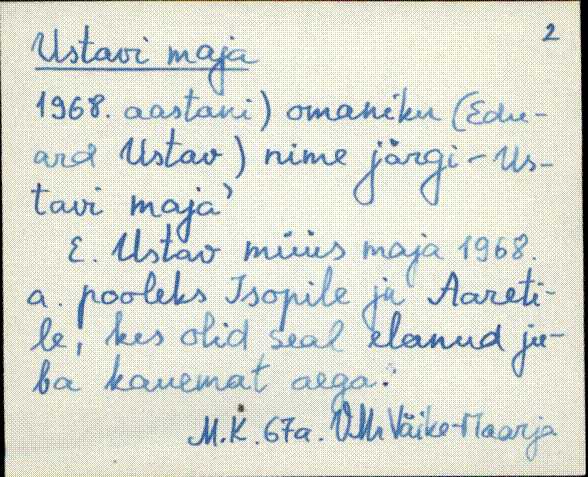 2
Ustavi maja
1968. aastani) omaniku (Edu-
ard Ustav) nime järgi - Us-
tavi maja'
E. Ustav müüs maja 1968.
a. pooleks Isopile ja Aareti-
le, kes olid seal elanud ju-
ba kauemat aega.
M.K. 67a. Väike-Maarja